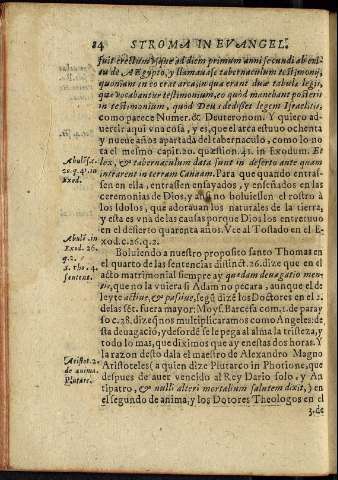 84 STROMA IN EVANGEL.
fuit erectum vsque ad diem primum anni secundi ab exi-
tu de Aegypto, y llamauase tabernaculum testimonij,
quoniam in eo erat arca, in qua erant duæ tabulæ legis,
quæ vocabantur testimonium, eo quòd manebant posteris
in testimonium, quòd Deus dedisset legem Israelitis:
como parece Numer. & Deuteronom. Y quiero ad-
uertir aqui vna cosa, y es, que el arca estuuo ochenta
y nueue años apartada del tabernaculo, como lo no-
ta el mesmo capit. 20. quæstion. 41. in Exodum. Et
lex, & tabernaculum data sunt in deserto ante quam
intrarent in terram Canaam. Para que quando entras-
sen en ella, entrassen ensayados, y enseñados en las
ceremonias de Dios, y assi no boluiessen el rostro à
los Idolos, que adorauan los naturales de la tierra,
y esta es vna de las causas porque Dios los entretuuo
en el desierto quarenta años. Vee al Tostado en el E-
xod. c. 26. q. 2.
Boluiendo a nuestro proposito santo Thomas en
el quarto de las sentencias distinct. 26. dize que en el
acto matrimonial siempre ay quædam deuagatio men-
tis, que no la vuiera si Adam no pecara, aunque el de
leyte actiue, & passiue, segũ dize los Doctores en el 2.
de las sẽt. fuera mayor: Moys. Barcefa com. t. de paray
so c. 28. dize q̃ nos multiplicaramos como Angeles: de
sta deuagació, y desordẽ se le pega al alma la tristeza, y
todo lo mas, que diximos que ay en estas dos horas. Y
la razon desto dala el maestro de Alexandro Magno
Aristoteles (a quien dize Plutarco in Photione, que
despues de auer vencido al Rey Dario solo, y An
tipatro, & nulli alteri mortalium salutem dixit,) en
el segundo de anima, y los Dotores Theologos en el
3. de
Abulẽs. c.
20. q. 41. in
Exod.
Abulẽ. in
Exod. 26.
q. 2.
s. tho. 4.
sentent.
Aristot. 2.
de anima.
Plutarc.